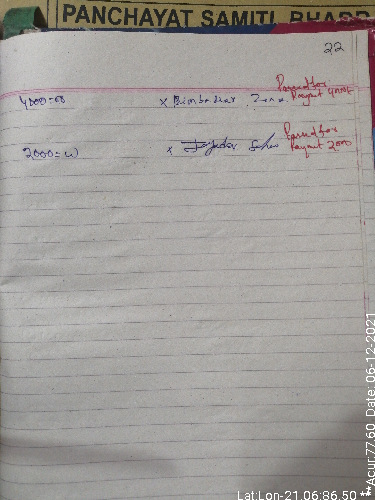 PANCHAYAT SAMITI, BHADR
22
Passed for
4000=00 x Bimbadhar Jena Payment 4000/-
Passed for
2000=00 x Sahu Payment 2000
Lat:Lon-21.06:86.50 **Acur:77.60 Date: 06-12-2021